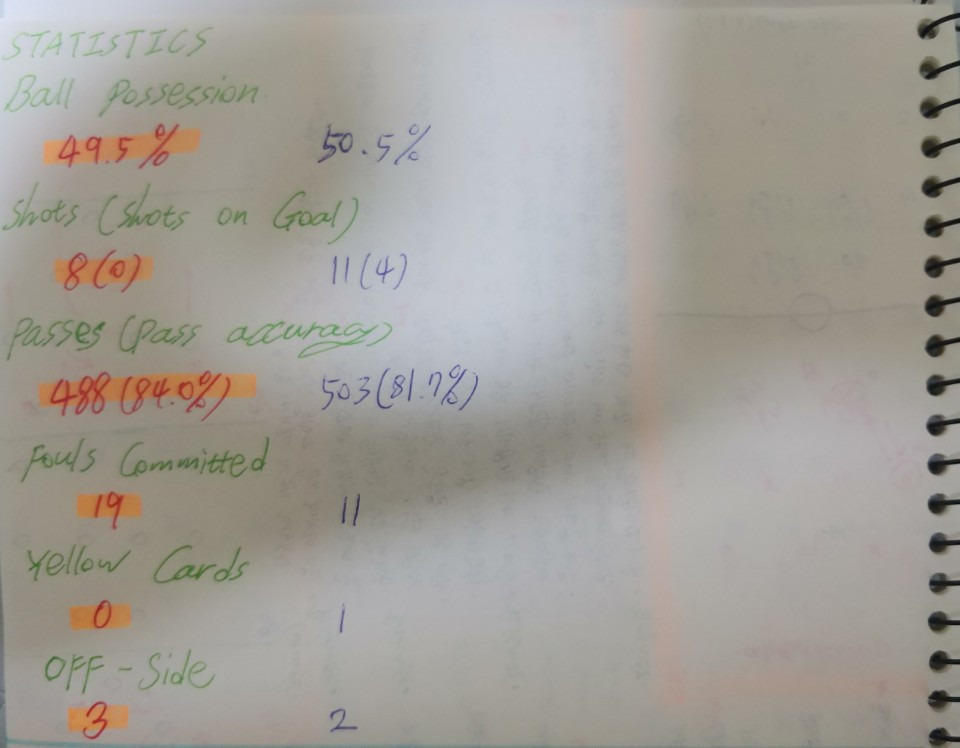 STATISTICS
Ball Possession
49.5% 50.5%
Shots (Shots on Goal)
8(0) 11(4)
Passes (Pass accuracy)
488(84.0%) 503(81.7%)
Fouls Committed
19 11
Yellow Cards
0 1
OFF-Side
3 2